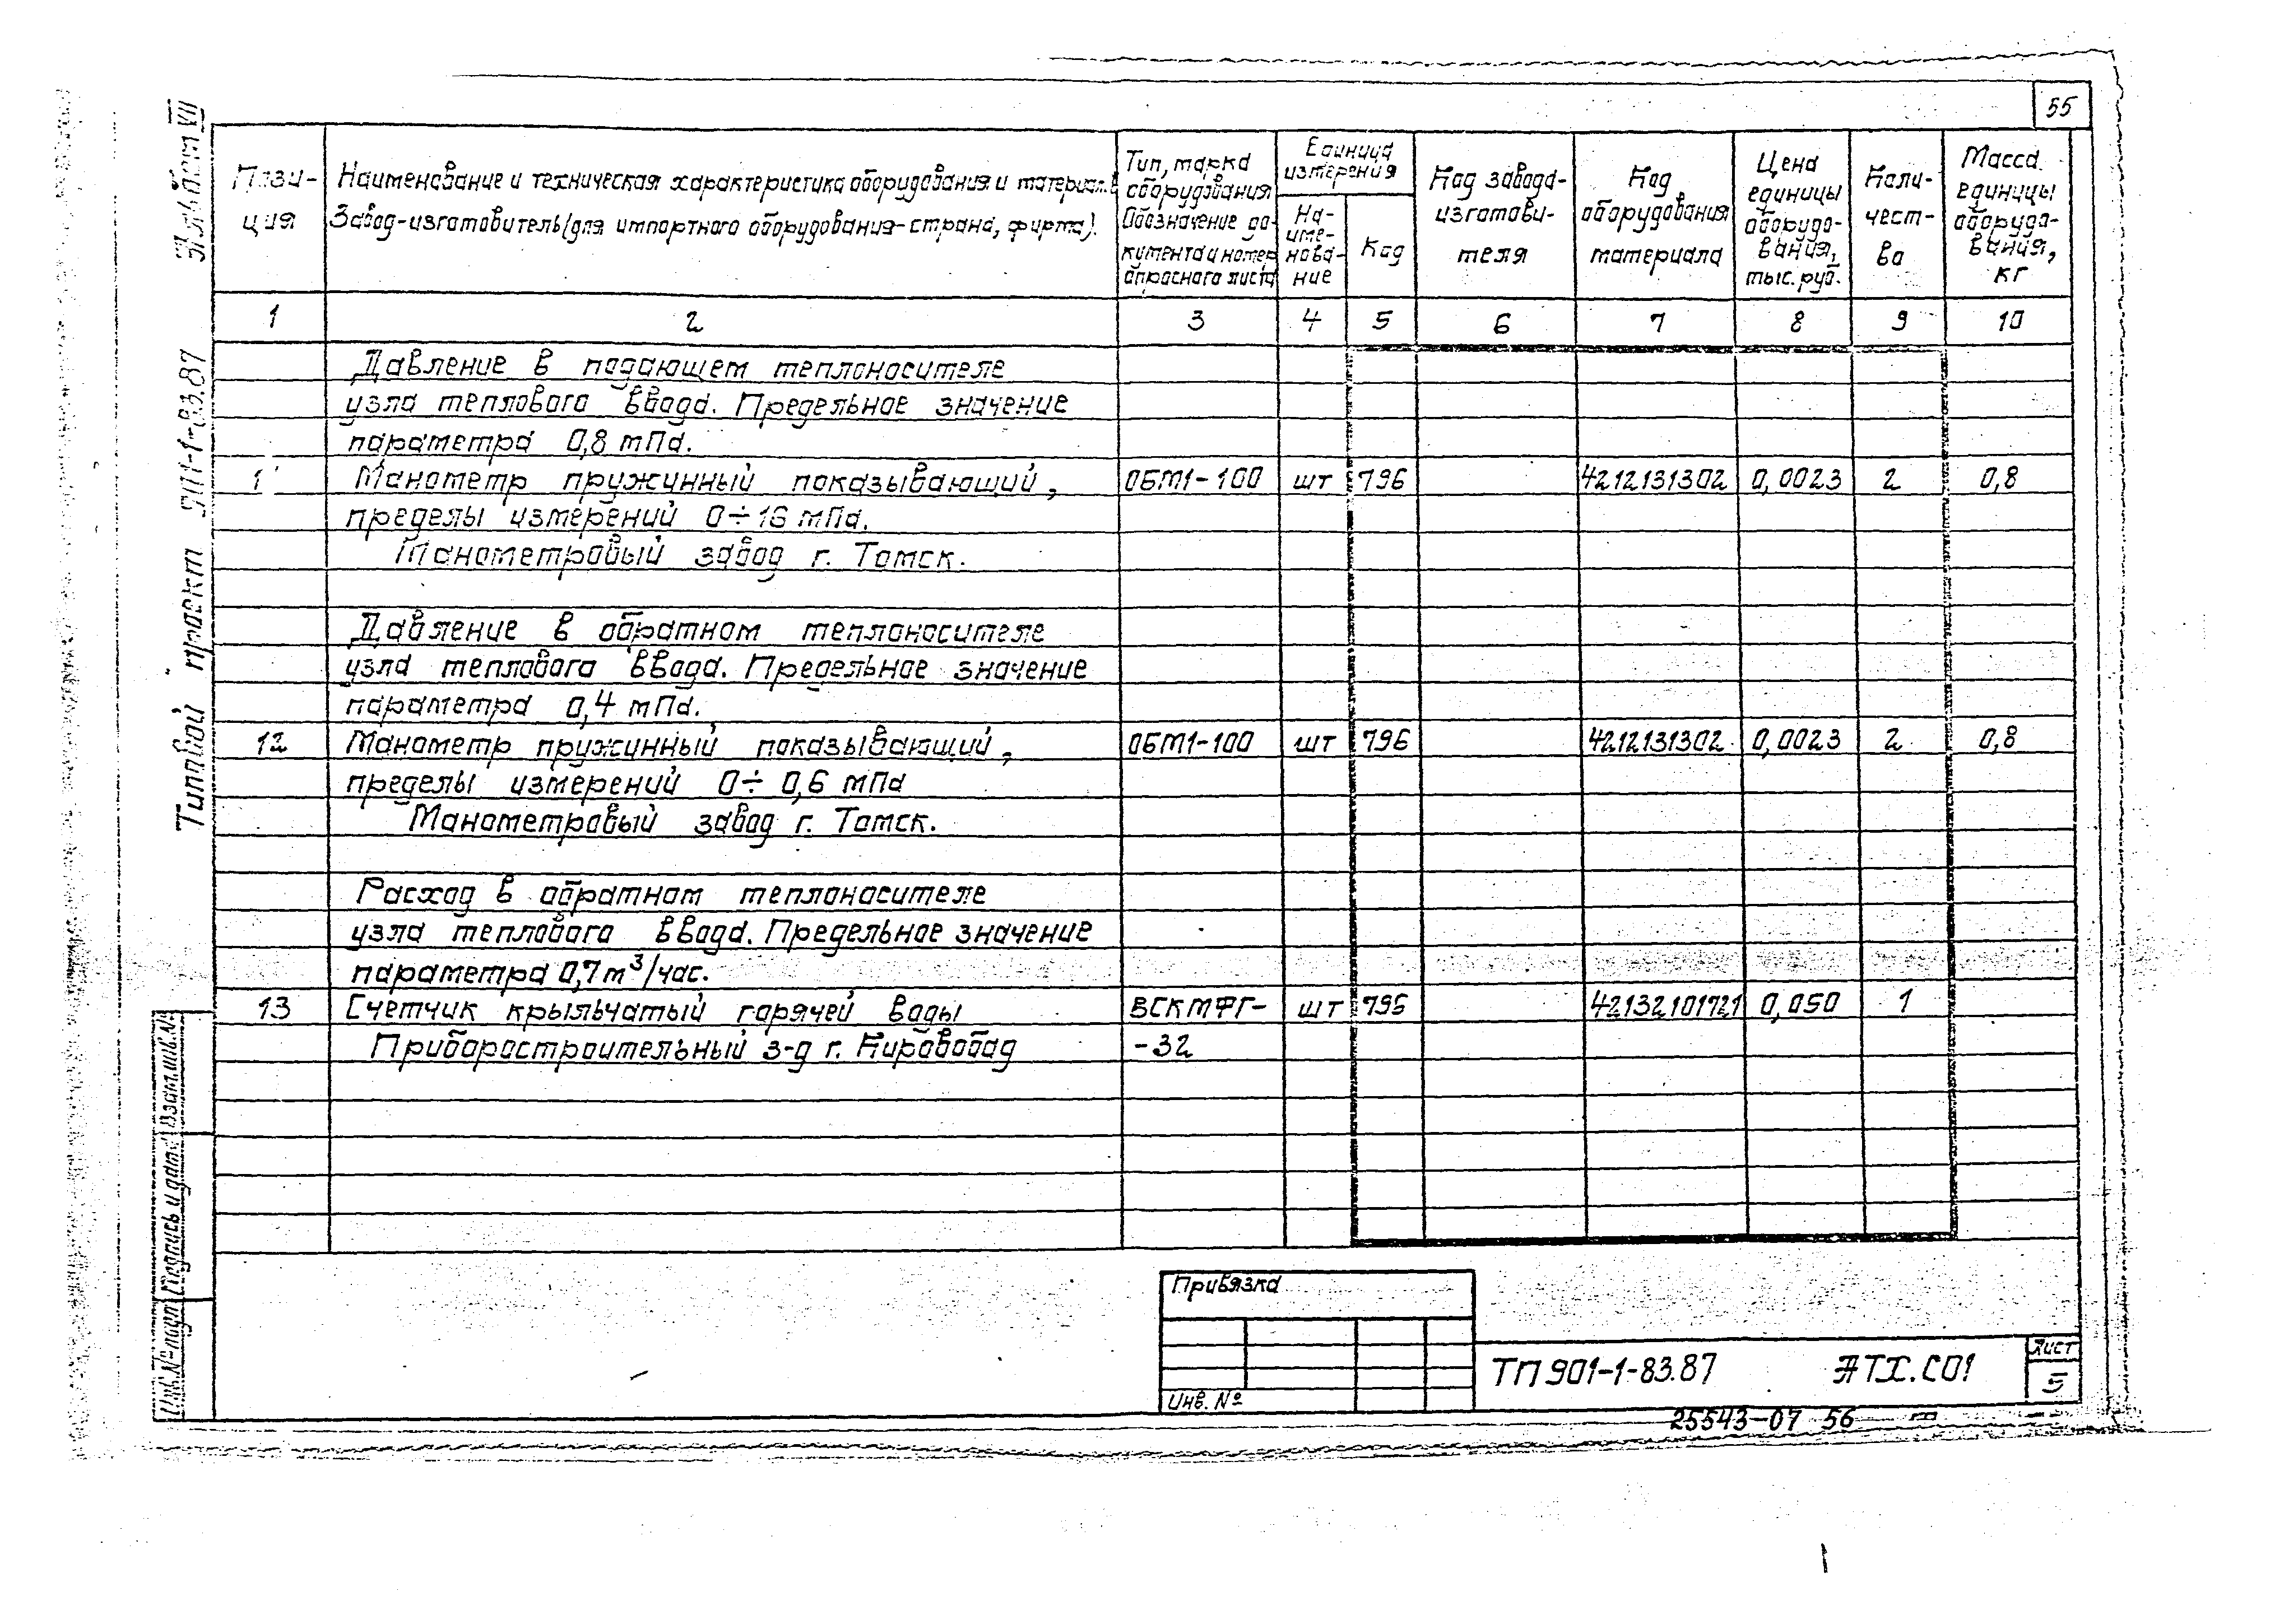 55
Альбом VII
Типовой проект 901-1-83.87
Пози-
ция
Наименование и техническая характеристика оборудования и материалов
Завод-изготовитель (для импортного оборудования-страна, фирма).
Тип, марка
оборудования
Обозначение до-
кумента и номер
опросного листа
Единица
измерения
На-
име-
нова-
ние
Код
Код завода-
изготови-
теля
Код
оборудования
материала
Цена
единицы
оборудо-
вания,
тыс. руб.
Коли-
чест-
во
Масса
единицы
оборудо-
вания,
кг
1 2 3 4 5 6 7 8 9 10
Давление в подающем теплоносителе
узла теплового ввода. Предельное значение
параметра 0,8 мПа.
Манометр пружинный показывающий, ОБМ1-100 шт 796 4212131302 0,0023 2 0,8
пределы измерений 0÷16 мПа.
Манометровый завод г. Томск.
Давление в обратном теплоносителе
узла теплового ввода. Предельное значение
параметра 0,4 мПа.
12 Манометр пружинный показывающий, ОБМ1-100 шт 796 4212131302 0,0023 2 0,8
пределы измерений 0÷ 0,6 мПа
Манометровый завод г. Томск.
Расход в обратном теплоносителе
узла теплового ввода. Предельное значение
параметра 0,7 м³/час.
13 Счетчик крыльчатый горячей воды ВСКМФГ- шт 796 42132101721 0,050 1
Приборостроительный з-д г. Кировобад -32
Взам.инв.№
Подпись и дата
Инв.№ подл.
Привязка
Инв. №
ТП 901-1-83.87 АТХ.СО1
Лист
5
25543-07 56